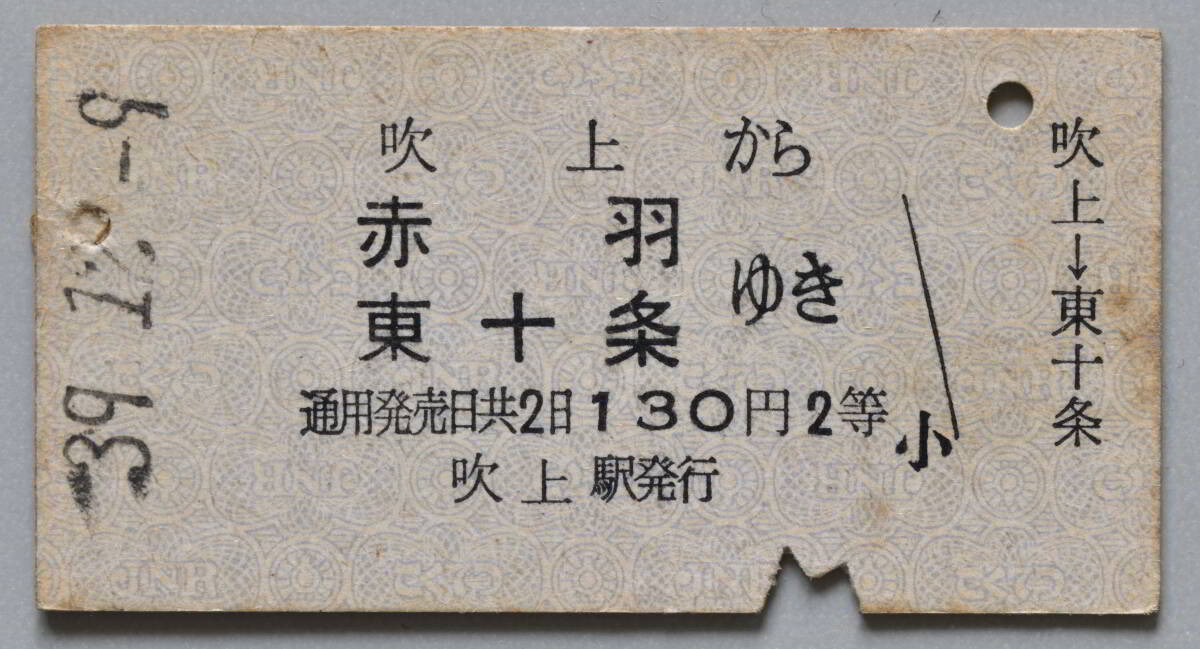 39.12.-9
吹上から
赤羽
東十条
ゆき
通用発売日共2日130円2等
小
吹上駅発行
吹上→東十条